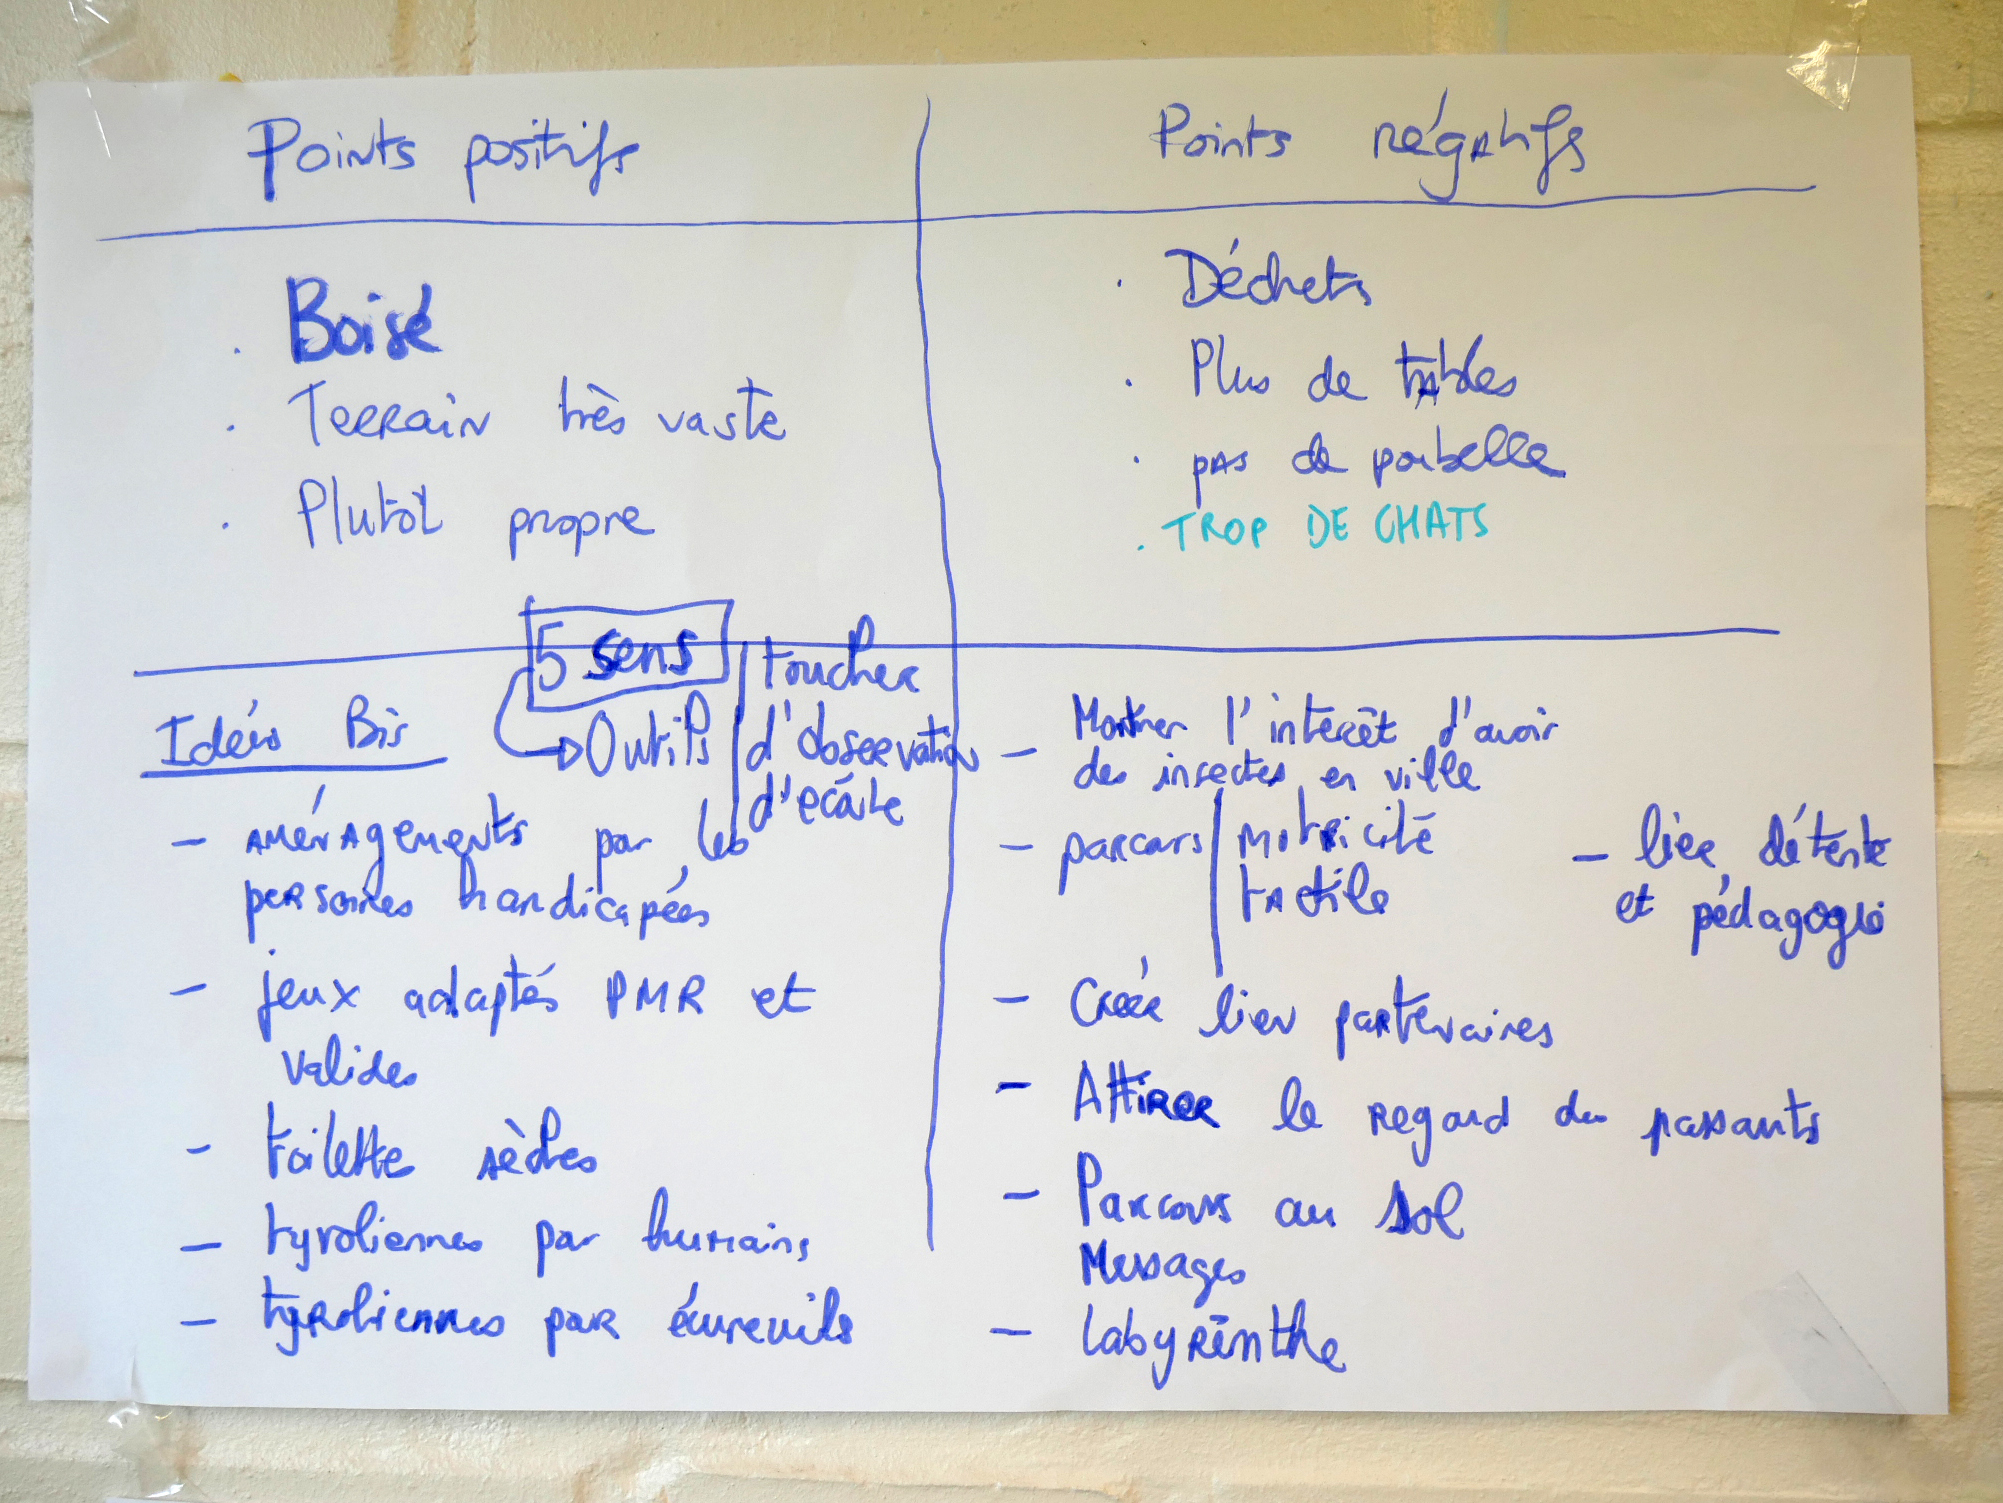 Points positifs
Points négatifs
. Boisé
. Terrain très vaste
. Plutôt propre
. Déchets
. Plus de tables
. pas de poubelle
. TROP DE CHATS
5 sens
Outils
toucher
d'observation
d'écoute
Idées Bis
- aménagements par les
personnes handicapées
- jeux adaptés PMR et
valides
- toilette sèches
- tyroliennes par humains
- tyroliennes par écureuils
- Montrer l'intérêt d'avoir
des insectes en ville
- parcours
motricité
tactile
- lier détente
et pédagogie
- Créer lien partenaires
- Attirer le regard des passants
- Parcours au sol
Messages
- Labyrinthe